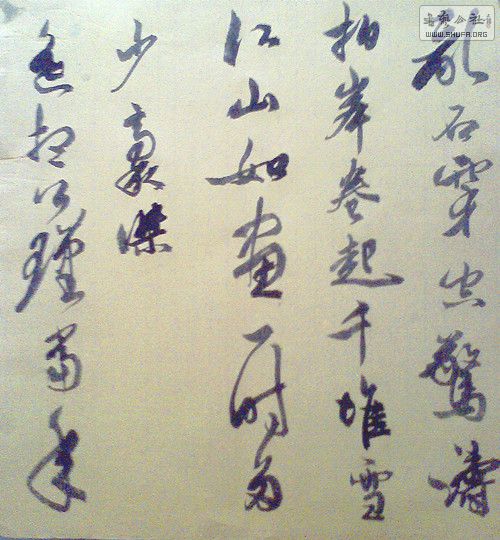 乱石穿空惊涛
拍岸卷起千堆雪
江山如画一时多
少豪杰
遥想公瑾当年
WWW.SHUFA.ORG